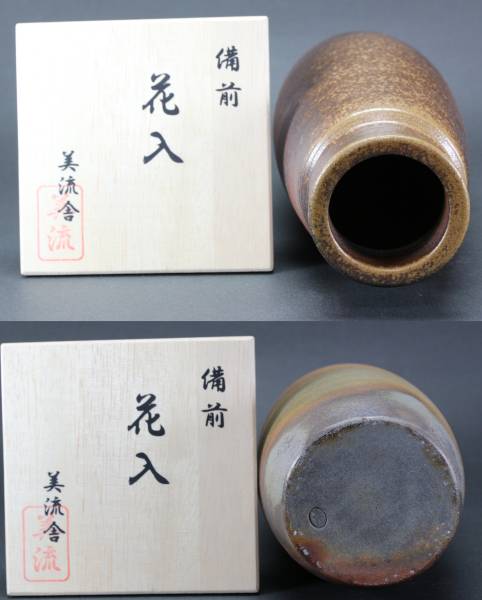 備前
花入
美流舎
美流
備前
花入
美流舎
美流